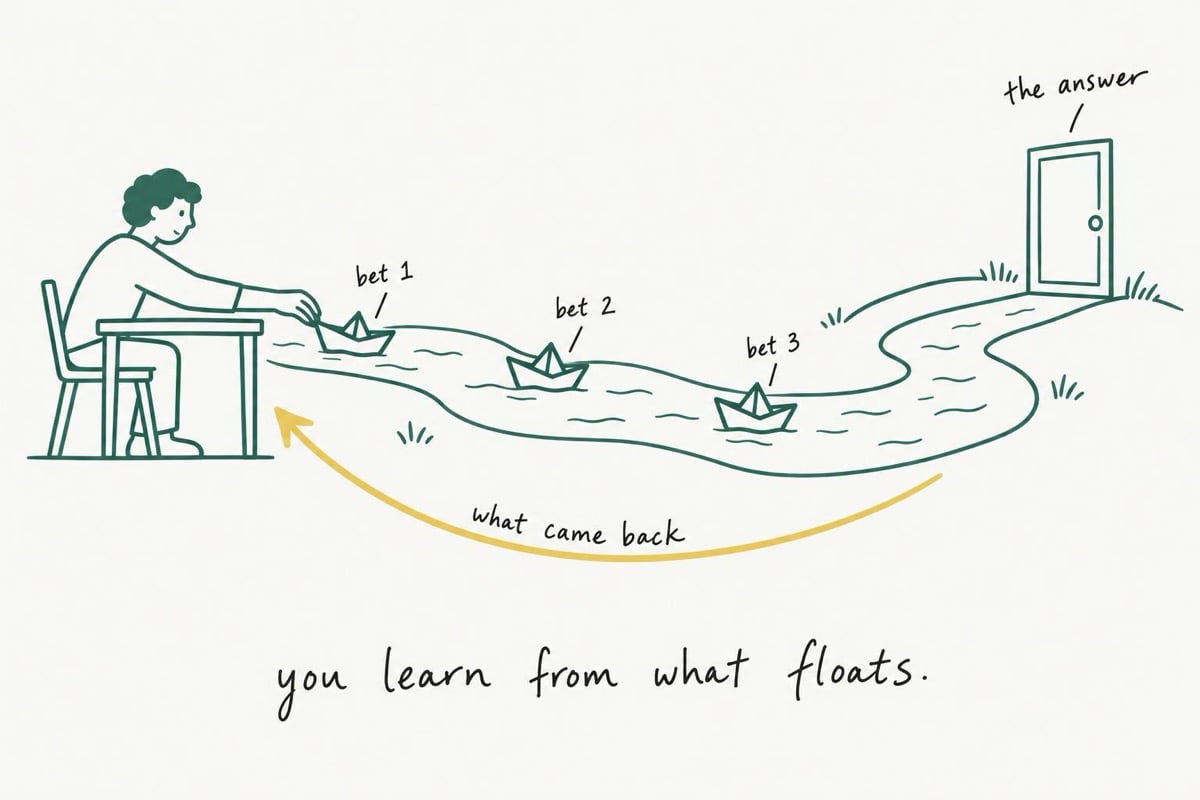 the answer
bet 1
bet 2
bet 3
what came back
you learn from what floats.